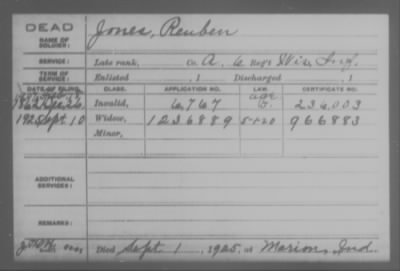 DEAD
NAME OF SOLDIER:
Jones, Reuben
SERVICE:
Late rank, Co. A, 6 Reg't Wis Inf.
TERM OF SERVICE:
Enlisted , 1 Discharged , 1
DATE OF FILING. CLASS. APPLICATION NO. LAW. CERTIFICATE NO.
Invalid, 6,767 236,003
1925 Sept 10 Widow, 1236889 5-1-20 966883
Minor,
ADDITIONAL SERVICES:
REMARKS:
Died Sept 1, 1925, at Marion, Ind.